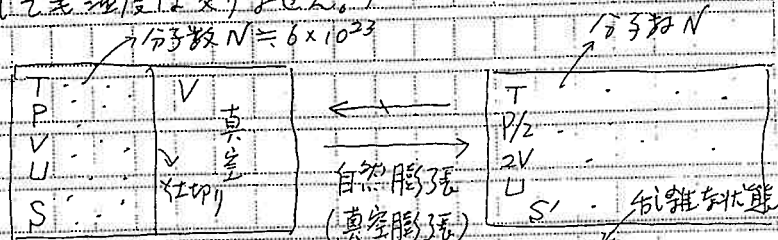 ても温度は変りません。)
分子数 N ≒ 6×10²³
分子数 N
T
P
V
U
S
V
真空
仕切り
自然膨張
(真空膨張)
T
P/2
2V
U
S'
乱雑な状態